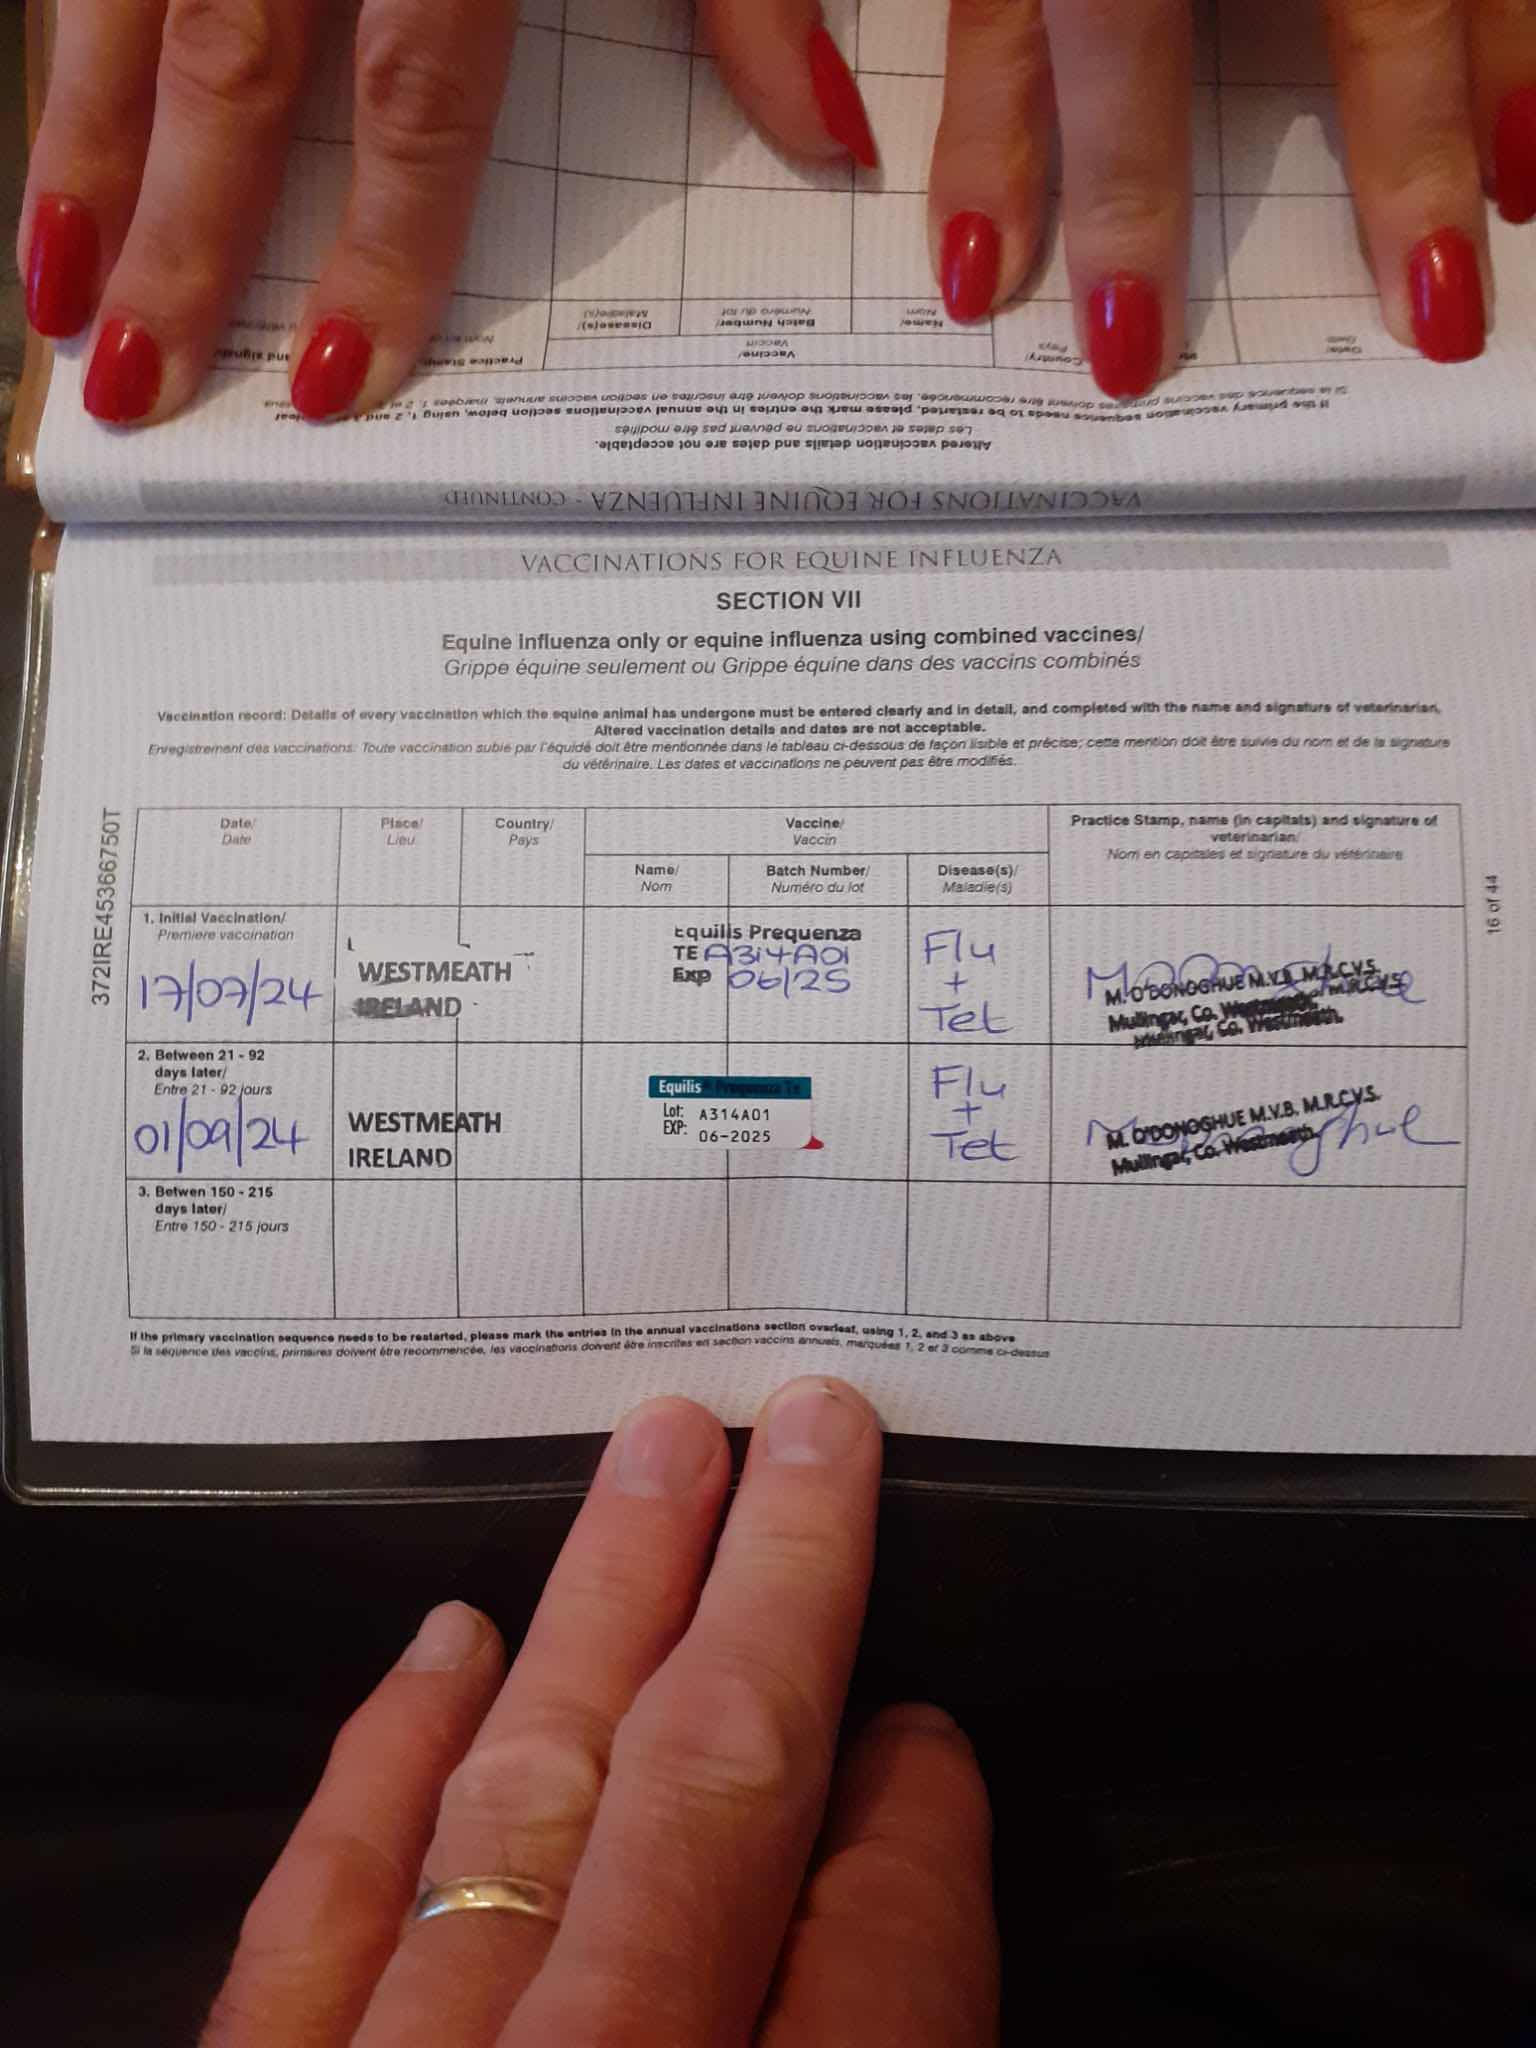 Practice Stamp,
and signat
Vaccine/
Vaccin
Country/
Pays
Date/
Date
Disease(s)/
Maladie(s)
Batch Number/
Numéro du lot
Name/
Nom
If the primary vaccination sequence needs to be restarted, please mark the entries in the annual vaccinations section below, using 1, 2 and
Si la séquence des vaccins primaires doivent être recommencée, les vaccinations doivent être inscrites en section vaccins annuels, marquées 1, 2 et
Altered vaccination details and dates are not acceptable.
Les dates et vaccinations ne peuvent pas être modifiés
VACCINATIONS FOR EQUINE INFLUENZA - CONTINUED
VACCINATIONS FOR EQUINE INFLUENZA
SECTION VII
Equine influenza only or equine influenza using combined vaccines/
Grippe équine seulement ou Grippe équine dans des vaccins combinés
Vaccination record: Details of every vaccination which the equine animal has undergone must be entered clearly and in detail, and completed with the name and signature of veterinarian.
Altered vaccination details and dates are not acceptable.
Enregistrement des vaccinations: Toute vaccination subie par l'équidé doit être mentionnée dans le tableau ci-dessous de façon lisible et précise; cette mention doit être suivie du nom et de la signature
du vétérinaire. Les dates et vaccinations ne peuvent pas être modifiés.
372IRE45366750T
16 of 44
Date/
Date
Place/
Lieu
Country/
Pays
Vaccine/
Vaccin
Practice Stamp, name (in capitals) and signature of
veterinarian/
Nom en capitales et signature du vétérinaire
Name/
Nom
Batch Number/
Numéro du lot
Disease(s)/
Maladie(s)
1. Initial Vaccination/
Premiere vaccination
17/07/24
WESTMEATH
IRELAND
Equilis Prequenza
TE A314A01
Exp 06/25
Flu
+
Tet
M. O'DONOGHUE M.V.B. M.R.C.V.S.
Mullingar, Co. Westmeath.
M.R.C.V.S.
Mullingar, Co. Westmeath.
2. Between 21 - 92
days later/
Entre 21 - 92 jours
01/09/24
WESTMEATH
IRELAND
Equilis Prequenza Te
Lot: A314A01
EXP: 06-2025
Flu
+
Tet
M. O'DONOGHUE M.V.B. M.R.C.V.S.
Mullingar, Co. Westmeath.
3. Betwen 150 - 215
days later/
Entre 150 - 215 jours
If the primary vaccination sequence needs to be restarted, please mark the entries in the annual vaccinations section overleaf, using 1, 2, and 3 as above
Si la séquence des vaccins, primaires doivent être recommencée, les vaccinations doivent être inscrites en section vaccins annuels, marquées 1, 2 et 3 comme ci-dessus